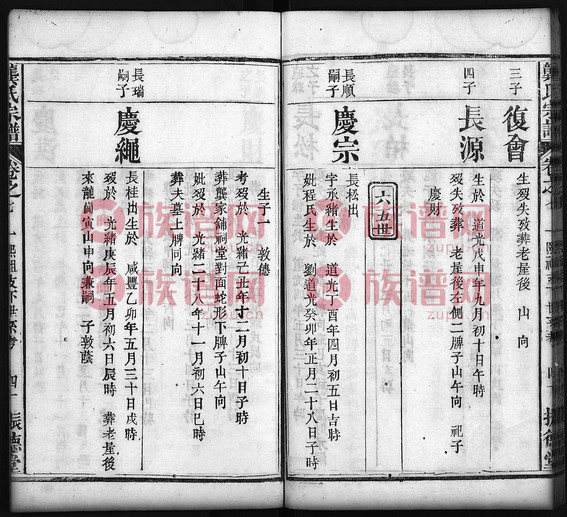 三子
復會
生歿失攷葬老屋後 山 向
四子
長源
生於 道光戊申年九月初十日午時
歿失攷葬 老屋後左側二牌子山午向 祀子
慶財
六五世
長順
嗣子
慶宗
長松出
字承緒生於 道光丁酉年四月初五日吉時
妣程氏生於 劉道光癸卯年正月二十八日子時
生子一 敦德
考歿於 光緒己丑年十二月初十日子時
葬龔家舖祠堂對面蛇形下牌子山午向
妣歿於 光緒二十八年十一月初六日巳時
葬夫墓上牌同向
長瑞
嗣子
慶繩
長桂出生於 咸豐乙卯年五月三十日戌時
歿於 光緒庚辰年五月初六日辰時 葬老屋後
來龍 寅山申向兼嗣 子敦蔭
龔氏宗譜
卷之七
振德堂
族谱网